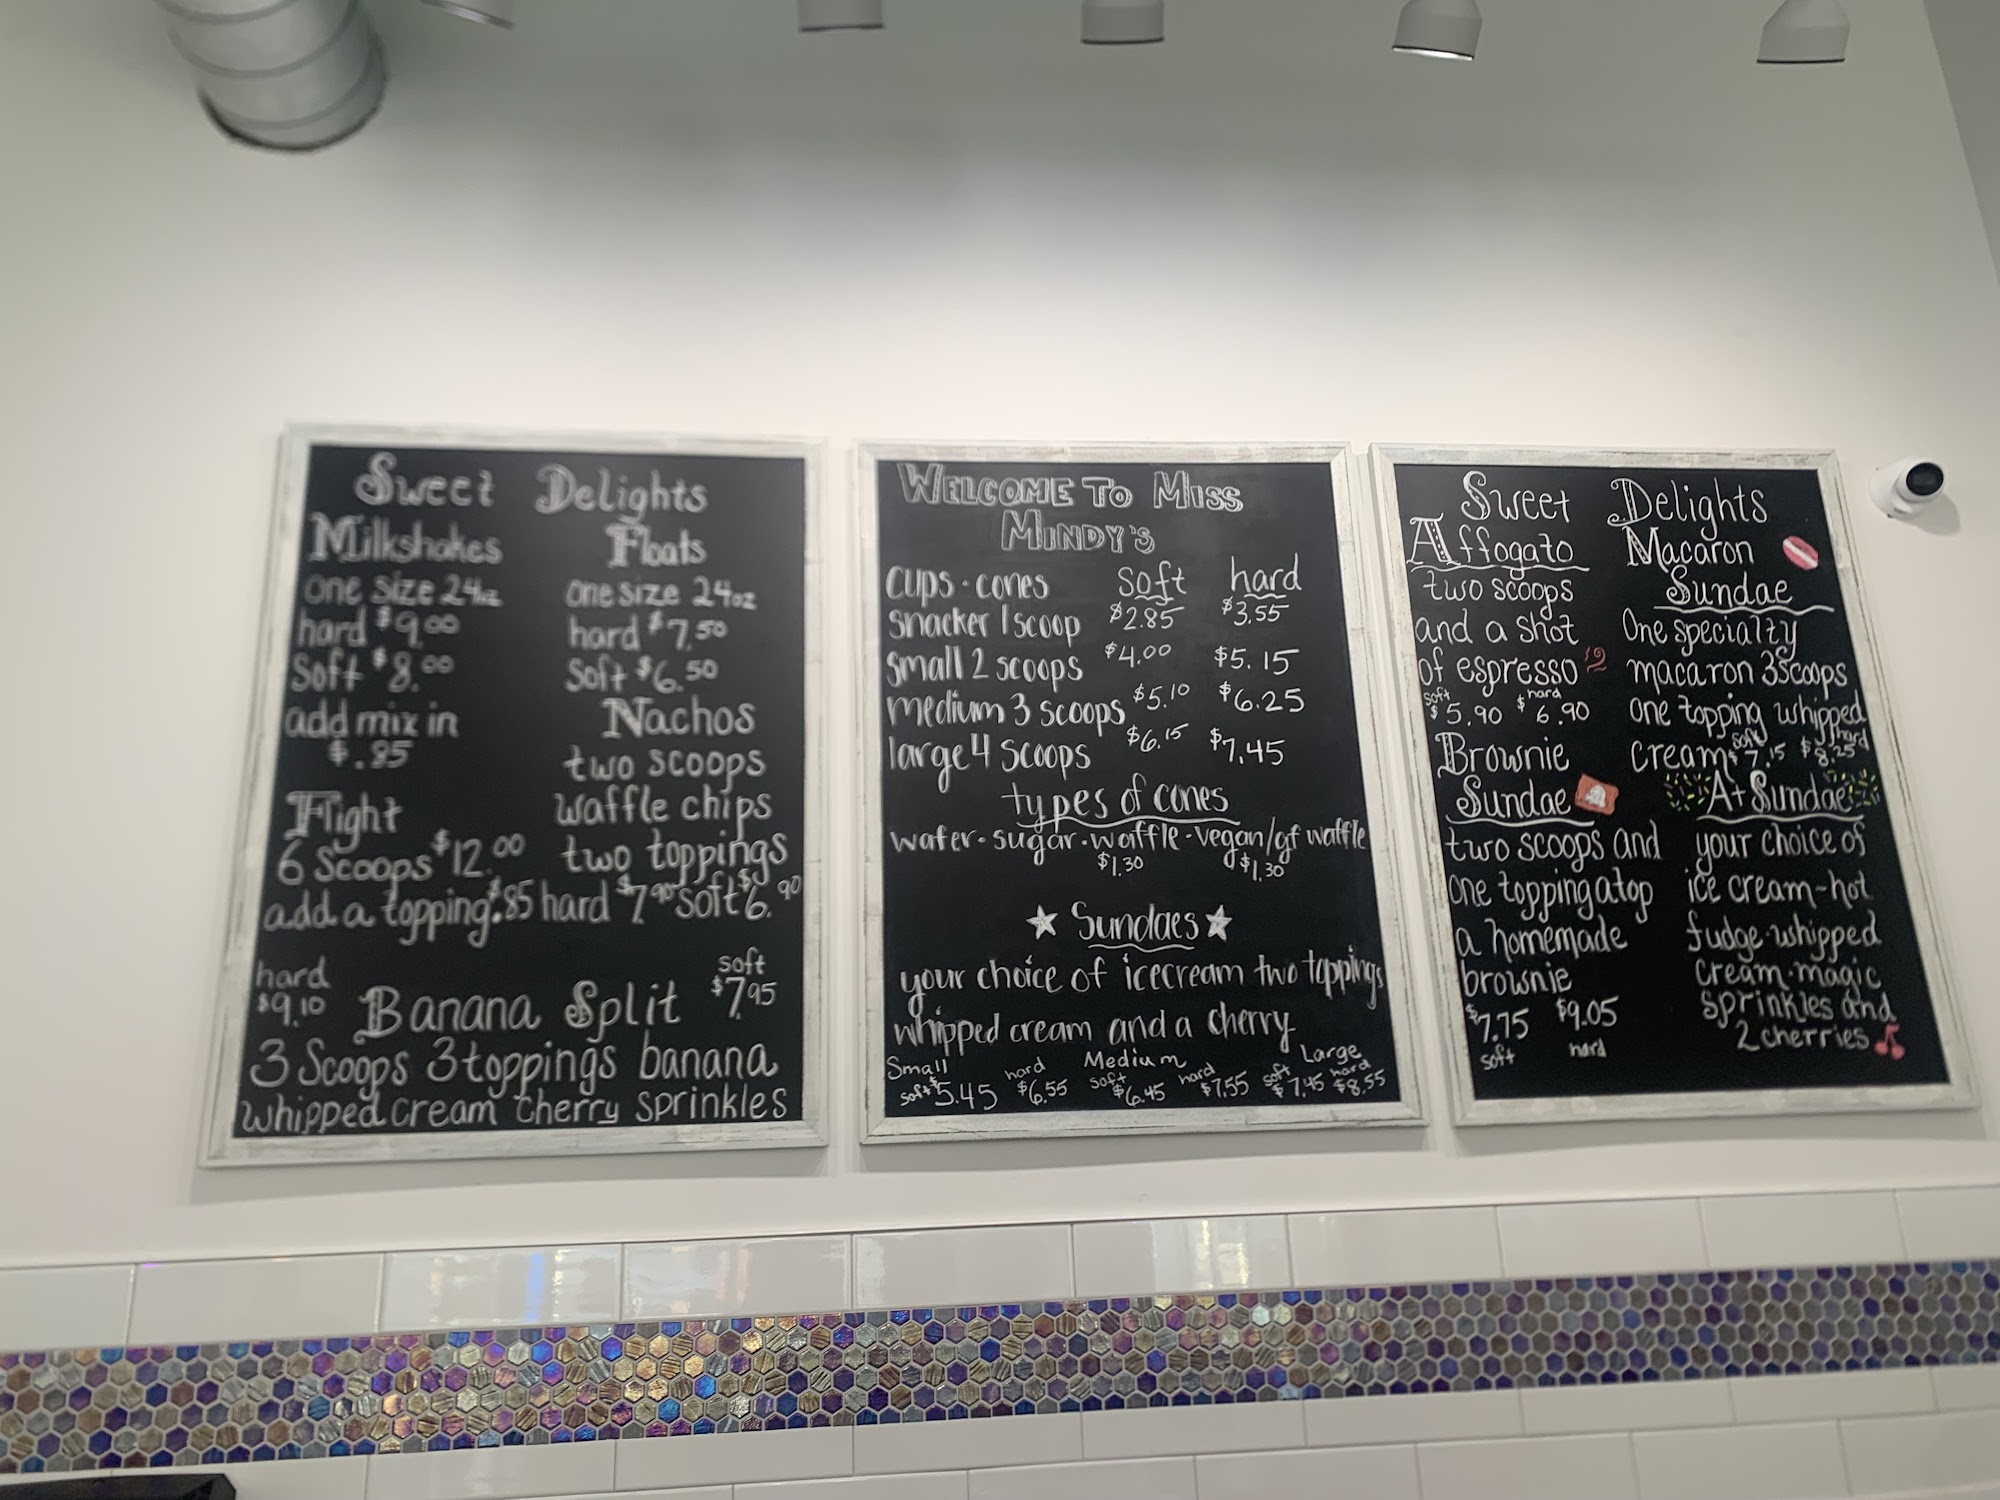 Sweet Delights
Milkshakes
one size 24oz
hard $9.00
Soft $8.00
add mix in
$.85
Flight
6 Scoops $12.00
add a topping $.85
Floats
one size 24oz
hard $7.50
Soft $6.50
Nachos
two scoops
waffle chips
two toppings
hard $7.90 soft $6.90
hard
$9.10
Banana Split
soft
$7.95
3 Scoops 3 toppings banana
whipped cream cherry sprinkles
WELCOME TO MISS
MINDY'S
cups · cones soft hard
snacker 1 scoop $2.85 $3.55
small 2 scoops $4.00 $5.15
medium 3 scoops $5.10 $6.25
large 4 scoops $6.15 $7.45
types of cones
wafer · sugar · waffle · vegan/gf waffle
$1.30 $1.30
Sundaes
your choice of icecream two toppings
whipped cream and a cherry
Small Medium Large
soft $5.45 hard $6.55 soft $6.45 hard $7.55 soft $7.45 hard $8.55
Sweet Delights
Affogato
two scoops
and a shot
of espresso
soft hard
$5.90 $6.90
Brownie
Sundae
two scoops and
one topping atop
a homemade
brownie
$7.75 $9.05
soft hard
Macaron
Sundae
One specialty
macaron 3 scoops
one topping whipped
cream soft $7.15 hard $8.25
A+ Sundae
your choice of
ice cream-hot
fudge·whipped
cream·magic
sprinkles and
2 cherries